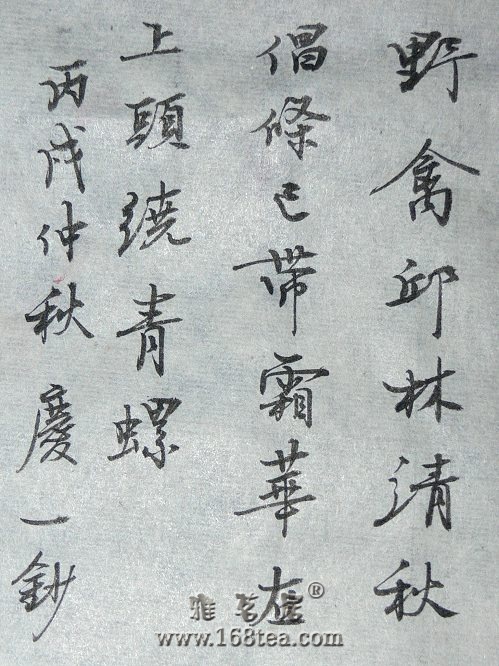 野禽邱林清秋
倡條已帶霜華在
上頭繞青螺
丙戌仲秋慶一鈔
雅茗居®
www.168tea.com